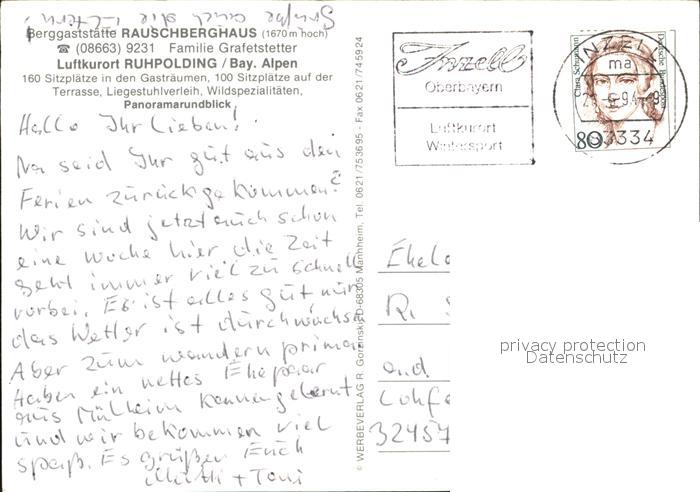 Grüße auch die Eltern!
Berggaststätte RAUSCHBERGHAUS (1670 m hoch)
☎ (08663) 9231 Familie Grafetstetter
Luftkurort RUHPOLDING / Bay. Alpen
160 Sitzplätze in den Gasträumen, 100 Sitzplätze auf der
Terrasse, Liegestuhlverleih, Wildspezialitäten,
Panoramarundblick
Hallo Ihr Lieben!
Na seid Ihr gut aus den
Ferien zurückgekommen?
Wir sind jetzt auch schon
eine Woche hier die Zeit
geht immer viel zu schnell
vorbei. Es ist alles gut nur
das Wetter ist durchwachsen
Aber zum wandern prima
Haben ein nettes Ehepaar
aus Mülheim kennengelernt
und wir bekommen viel
spaß. Es grüßen Euch
Mutti + Toni
© WERBEVERLAG R. Gorzinski, D-68305 Mannheim, Tel. 0621/753695 - Fax 0621/745924
Inzell
Oberbayern
Luftkurort
Wintersport
INZELL
ma
83334
Clara Schumann
Deutsche Bundespost
80
Ehele
R. S
and
Lohfe
32457
privacy protection
Datenschutz